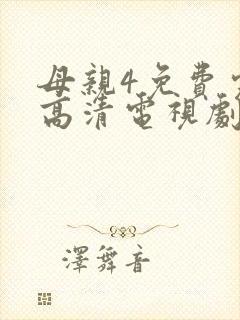 母親4免費
高清電視劇
澤舞音